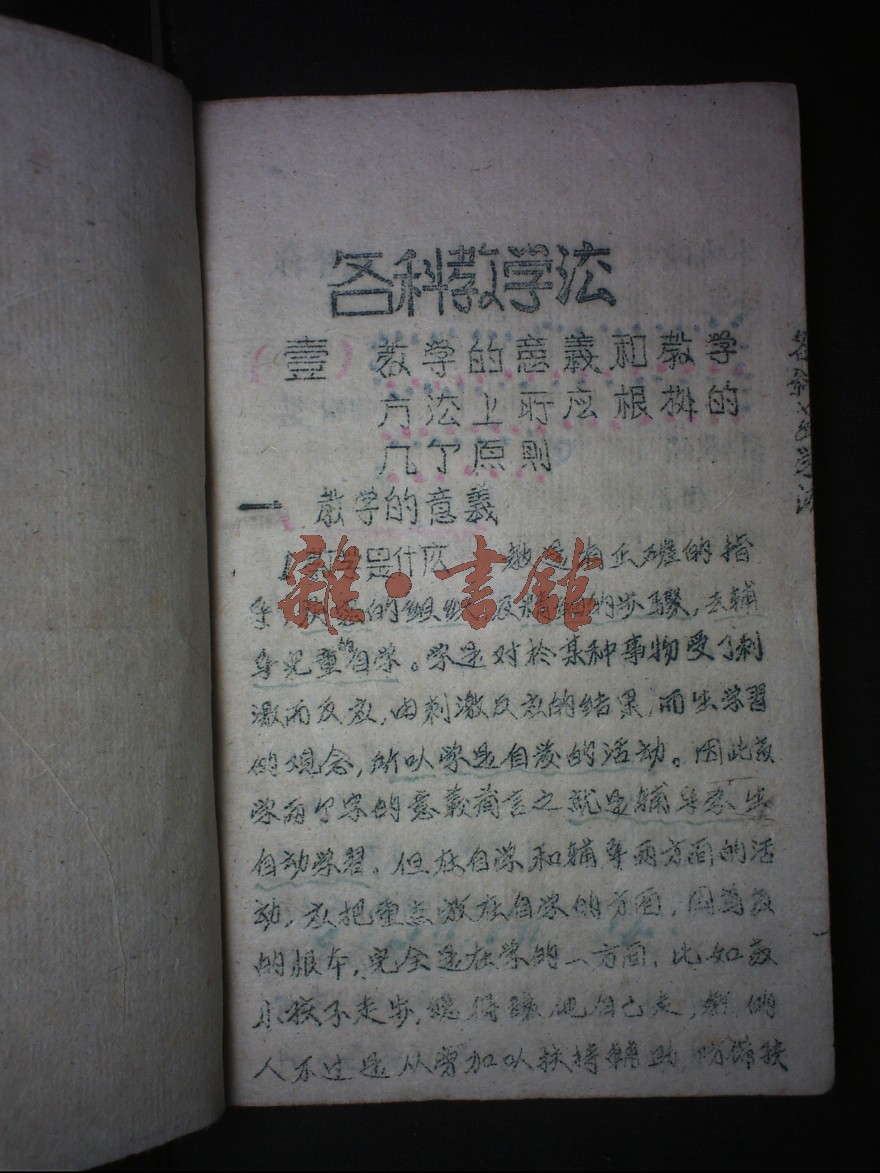 各科教学法
(壹) 教学的意義和教学
方法上所应根拠的
几个原則
一 教学的意義
1教学是什庅 教是有正確的指
导的組織及的步驟,去輔
导児童的自学。学是对於某种事物受了刺
激而反应,由刺激反应的结果,而生学習
的观念,所以学是自发的活动。因此教
学两个字的意義简言之就是辅导学生
自动学習。但在自学和輔导两方面的活
动,应把重点放在自学的方面,因為教
的根本,完全是在学的一方面,比如教
小孩子走步,總得讓他自己走,教的
人不过是从旁加以扶持輔助,防備跌
各科教学法
雜·書館